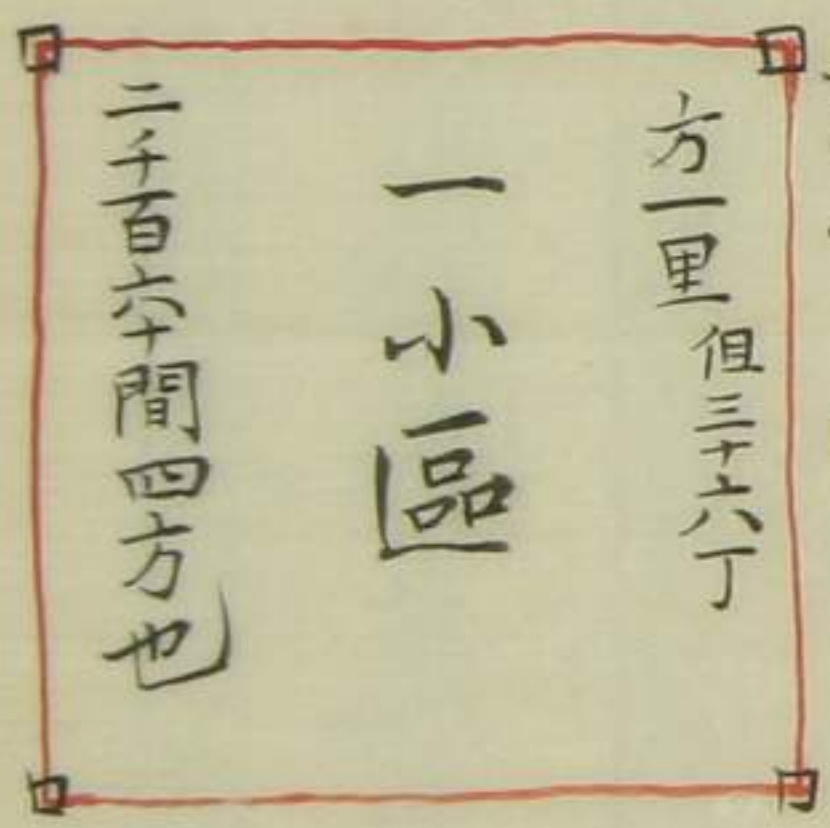 方一里 但三十六丁
一小區
二千百六十間四方也